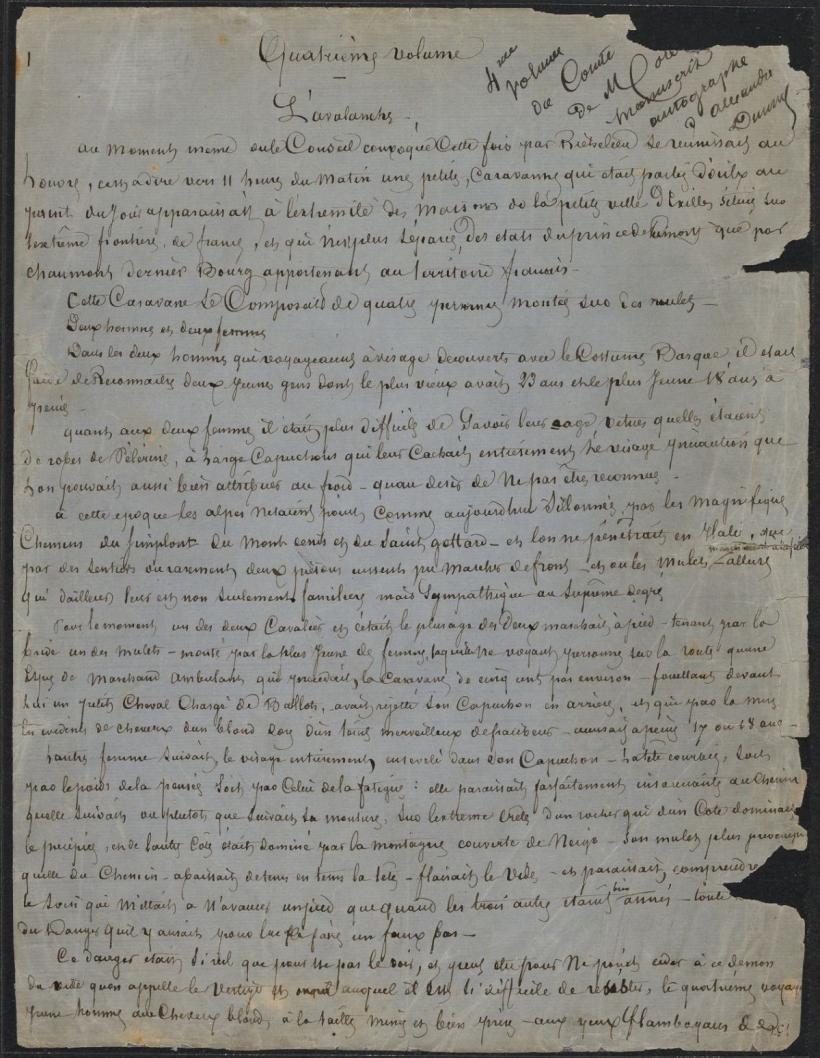 1
Quatrième volume
4me
volume
du Comte
de M
manuscrit
autographe
d'alexandre
Dumas
L'avalanche.
au moment même ou le Conseil convoqué Cette fois par Richelieu se reunissait au
Louvre, cest a dire vers 11 heures du Matin une petite, Caravanne qui etait partie d'oulx au
point du Jour apparaissait à l'extremité des maisons de la petite ville d'Exilles située sur
l'extrême frontière, de france, et qui n'est plus séparée, des etats du prince de Piemont que par
chaumont dernier Bourg appartenant au territoire français -
Cette Caravane se Composait de quatre personnes montés sur des mulets -
Deux hommes et deux femmes
Dans les deux hommes qui voyageaient à visage decouvert avec le Costume Basque il etait
facile de Reconnaitre deux Jeunes gens dont le plus vieux avait 23 ans et le plus Jeune 18 ans a
peine -
quant aux deux femmes il était plus difficile de Savoir leur age vetues quelles étaient
de robes de Pèlerine, à Large Capuchons qui leur Cachait entièrement le visage précaution que
lon pouvait aussi bien attribuer au froid - quau desir de Ne pas être reconnue -
à cette epoque les alpes netaient point Comme aujourdhui Sillonnées par les magnifiques
Chemins du simplont du Mont cenis et du Saint gottard - et lon ne pénétrait en Italie, que
par des sentiers ou rarement deux piétons eussent pu marcher de front - et ou les mulets Lallure
qui d'ailleurs leur est non seulement familière mais sympathique au Suprême degré
Pour le moment un des deux Cavaliers et cétait le plus agé des Deux marchait à pied - tenant par la
bride un des mulets - monté par la plus Jeune des femmes, laquelle ne voyant personne sur la route quune
Espece de Marchand ambulant qui precedait, la Caravane de cinq cents pas environ - fouettant devant
lui un petit Cheval Chargé de Ballots, avait rejetté son Capuchon en arrière, et qui par la mise
En evidence de cheveux dun blond doré dun teint merveilleux de fraicheur - accusait a peine 17 ou 18 ans -
Lautre femme suivait, le visage entierement enseveli dans son Capuchon - La tete courbée, Soit
par le poids de la pensée Soit par Celui de la fatigue : elle paraissait parfaitement insouciante au Chemin
quelle suivait ou plutôt que suivait sa monture, sur lextreme crete d'un rocher qui d'un Coté dominait
le precipice, et de lautre Coté était dominé par la montagne couverte de Neige - Son mulet plus
quelle du Chemin - abaissait de tems en tems la tête - flairait le Vide - et paraissait comprendre
le soin qui mettait a n'avancer un pied que quand les trois autres étaient bien - toute
du Danger quil y aurait pour lui de faire un faux pas -
Ce danger etait si réel que pour ne pas le voir, et peut etre pour Ne point ceder à ce demon
du vide quon appelle le vertige et auquel il est si difficile de resister, le quatrième voyag
Jeune homme aux Cheveux blonds, à la taille mince et bien prise - aux yeux flamboyans de